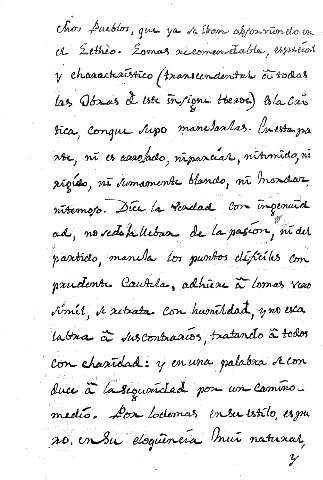 chos Pueblos, que ya se iban absorviendo en
el Letheo. Lo mas recomendable, especial
y characterístico (transcendental â todas
las Obras de este insigne Heroe) es la Cri
tica, conque supo manejarlas. En esta pa
rte, ni es arrojado, ni parcial, ni timido, ni
rigido, ni sumamente blando, ni mordaz
ni temoso. Dice la verdad con ingenuid
ad, no se dexa llevar de la pasion, ni del
partido, maneja los puntos dificiles con
prudente Cautela, adhiere â lo mas vero
simil, se retrata con humildad, y no esca
labra â sus contrarios, tratando â todos
con charidad: y en una palabra se con
duce â la seguridad por un camino
medio. Por lo demas en su estilo, es pu
ro, en su eloquencia mui natural,
y